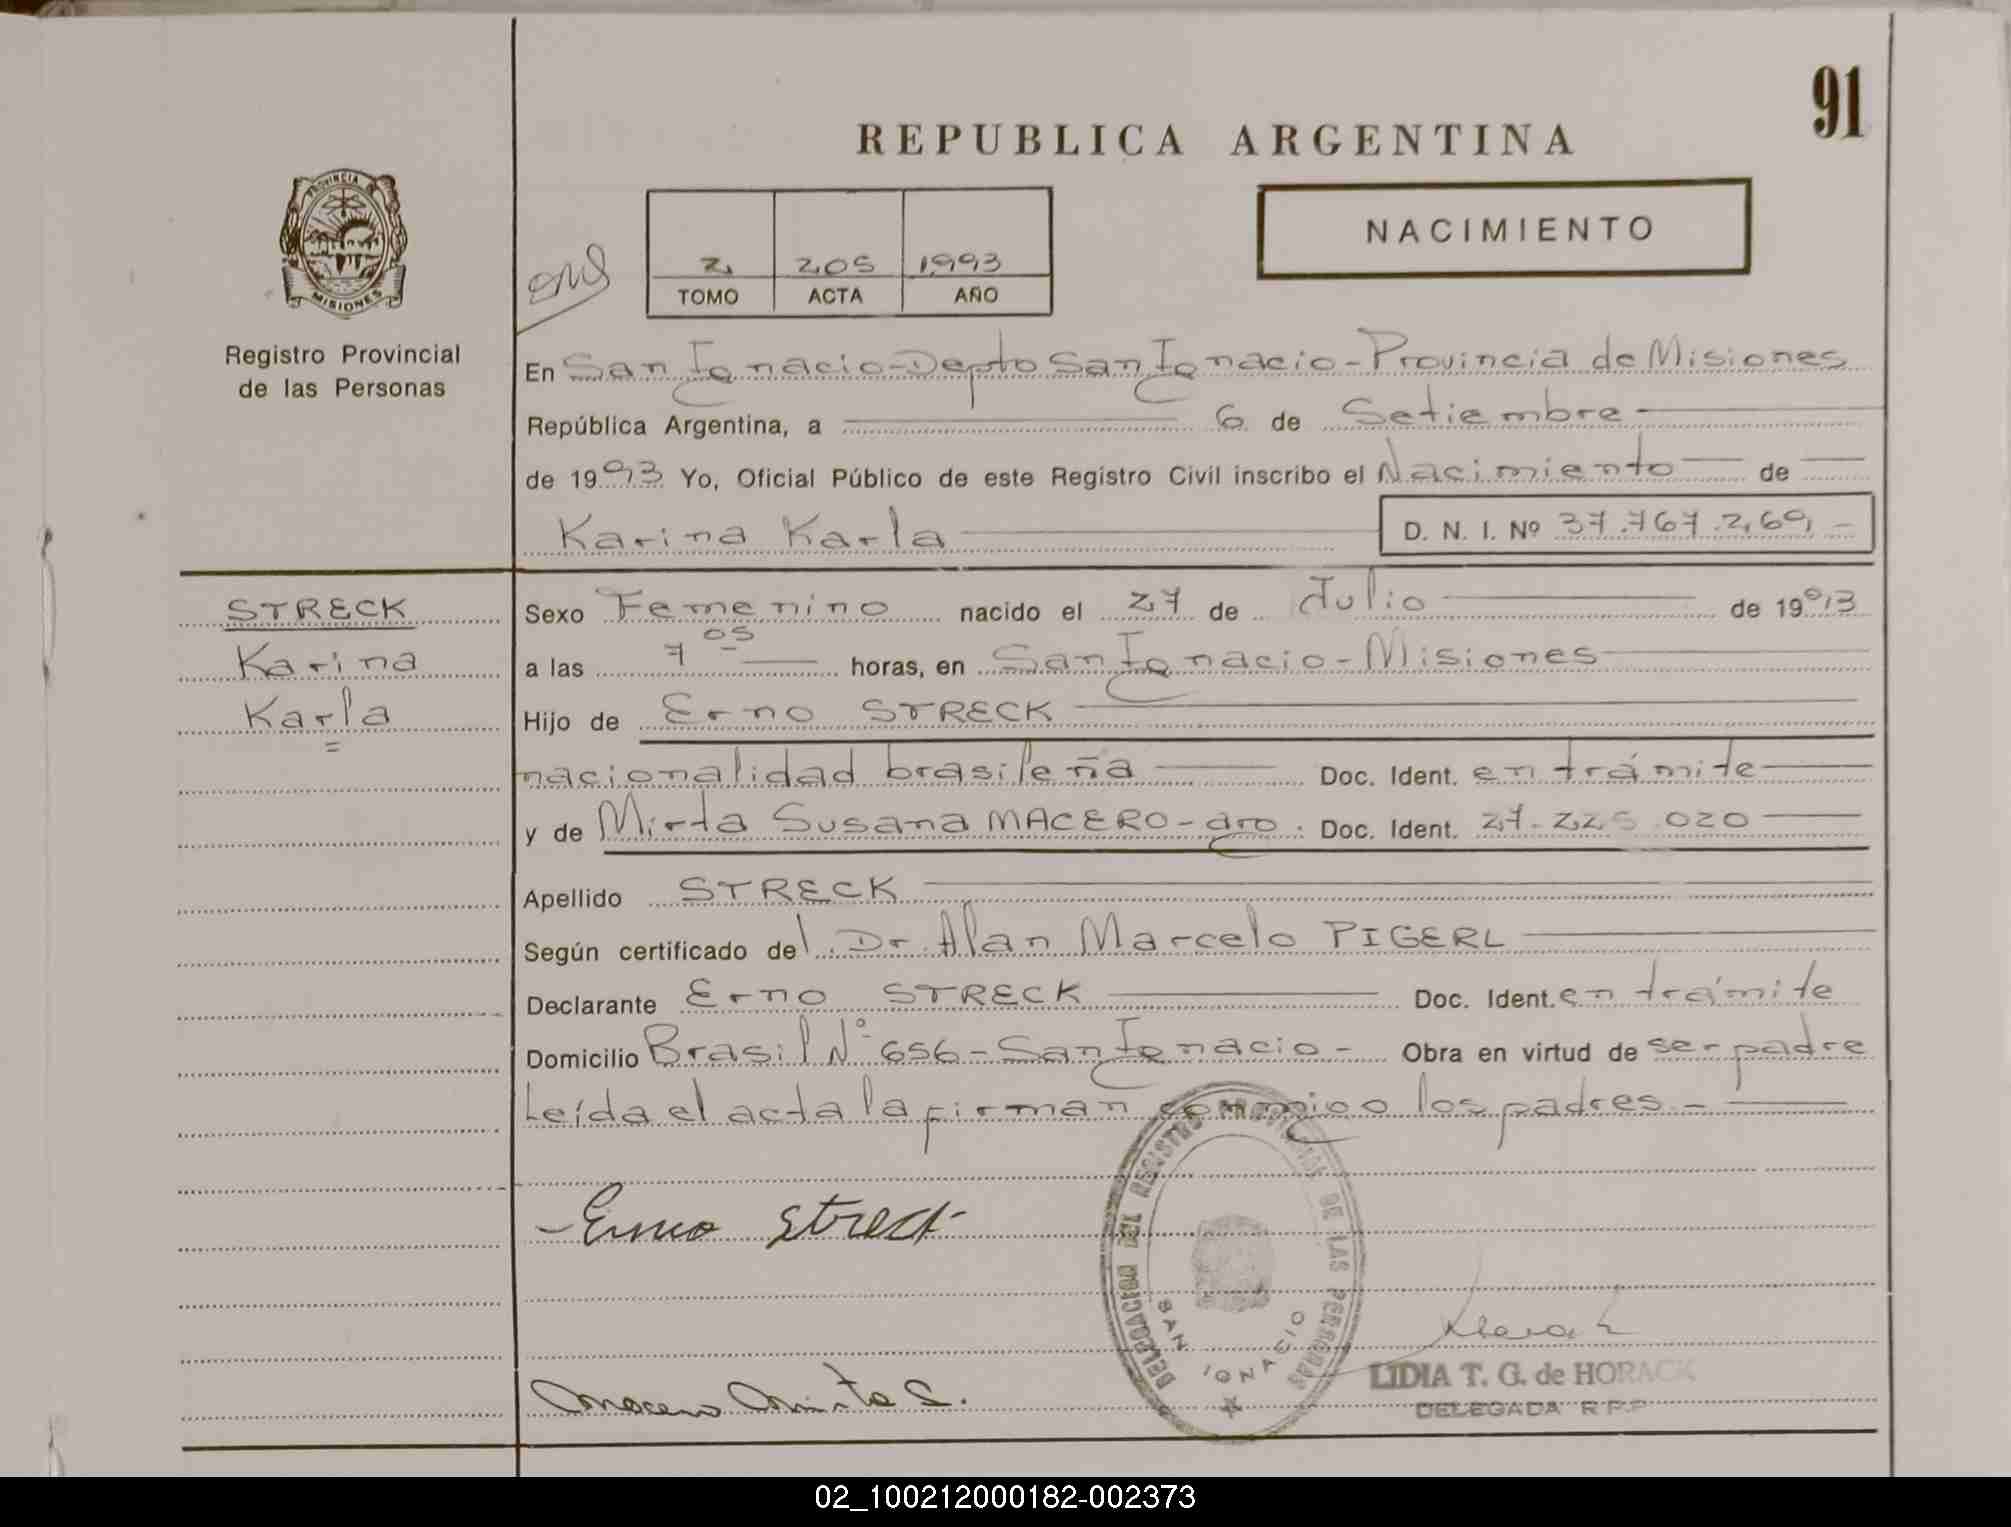 91
REPUBLICA ARGENTINA
NACIMIENTO
2 205 1993
TOMO ACTA AÑO
PROVINCIA DE
MISIONES
Registro Provincial
de las Personas
En San Ignacio-Depto San Ignacio-Provincia de Misiones
República Argentina, a 6 de Setiembre
de 1993 Yo, Oficial Público de este Registro Civil inscribo el Nacimiento de
Karina Karla D. N. I. Nº 37.767.269,-
STRECK
Karina
Karla
Sexo Femenino nacido el 27 de Julio de 1993
a las 7 05 horas, en San Ignacio-Misiones
Hijo de Erno STRECK
nacionalidad brasileña Doc. Ident. en trámite
y de Mirta Susana MACERO-arg. Doc. Ident. 27.225.020
Apellido STRECK
Según certificado del Dr. Alan Marcelo PIGERL
Declarante Erno STRECK Doc. Ident. en trámite
Domicilio Brasil Nº 656-San Ignacio- Obra en virtud de ser padre
Leída el acta la firman conmigo los padres.-
Erno Streck
DELEGACION DEL REGISTRO PROVINCIAL DE LAS PERSONAS
SAN IGNACIO
Macero Mirta S.
LIDIA T. G. de HORACK
DELEGADA R.P.P
02_100212000182-002373